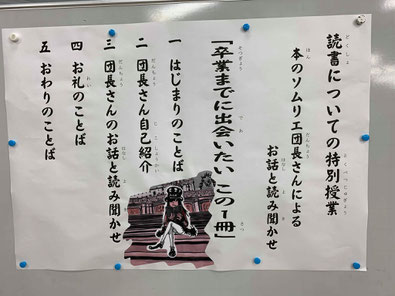 読書についての特別授業
本のソムリエ団長さんによる
お話と読み聞かせ
「卒業までに出会いたい この1冊」
一 はじまりのことば
二 団長さん自己紹介
三 団長さんのお話と読み聞かせ
四 お礼のことば
五 おわりのことば